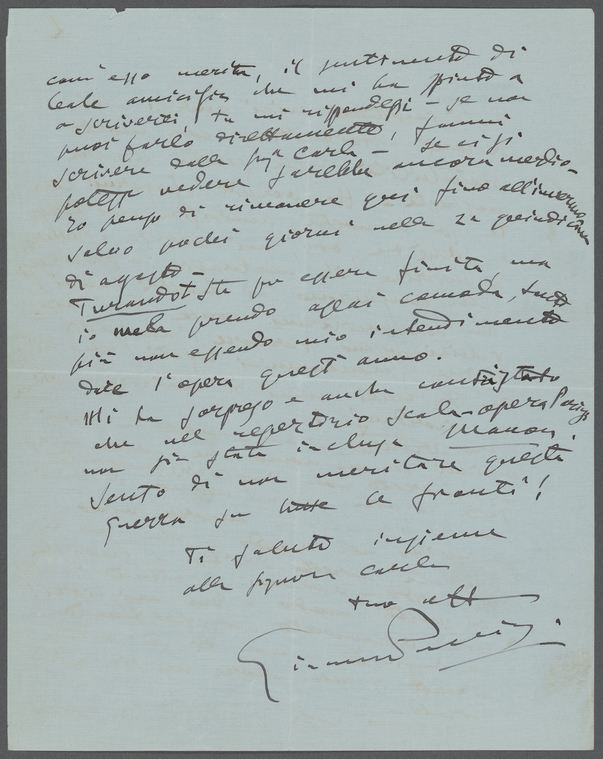 com'esso merita, il sentimento di
leale amicizia che mi ha spinto a
a scriverti, tu mi rispondessi – se non
puoi farlo direttamente, fammi
scrivere dalla sigra Carla – se ci si
potesse vedere sarebbe ancora meglio –
Io penso di rimanere qui fino all'inverno
salvo pochi giorni nella 2a quindicina
di agosto –
Turandot sta per essere finita, ma
io me la prendo assai comoda, tanto
più non essendo mio intendimento
dare l'opera quest'anno.
Mi ha sorpreso e anche contristato
che nel repertorio Scala – opera Parigi
non sia stata inclusa Manon.
Sento di non meritare questa
guerra su le fronti!
Ti saluto insieme
alla signora Carla
tuo aff
Giacomo Puccini